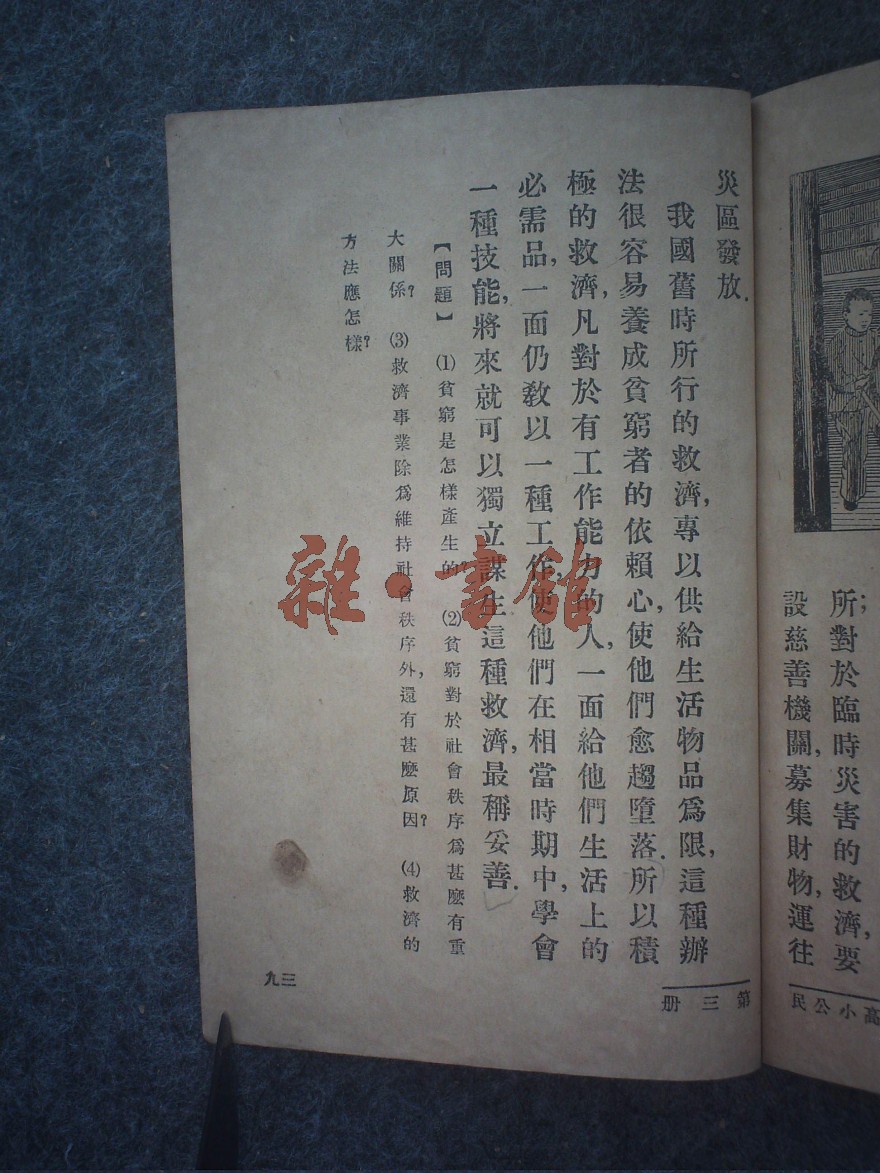 所對於臨時災害的救濟，要
設慈善機關，募集財物，運往
高小公民
災區發放．
我國舊時所行的救濟，專以供給生活物品爲限，這種辦
法很容易養成貧窮者的依賴心，使他們愈趨墮落．所以積
極的救濟，凡對於有工作能力的人，一面給他們生活上的
必需品，一面仍教以一種工作，使他們在相當時期中，學會
一種技能，將來就可以獨立謀生．這種救濟，最稱妥善．
【問題】　(1)貧窮是怎樣產生的？　(2)貧窮對於社會秩序爲甚麼有重
大關係？　(3)救濟事業除爲維持社會秩序外，還有甚麼原因？　(4)救濟的
方法應怎樣？
第三册
三九
雜·書館